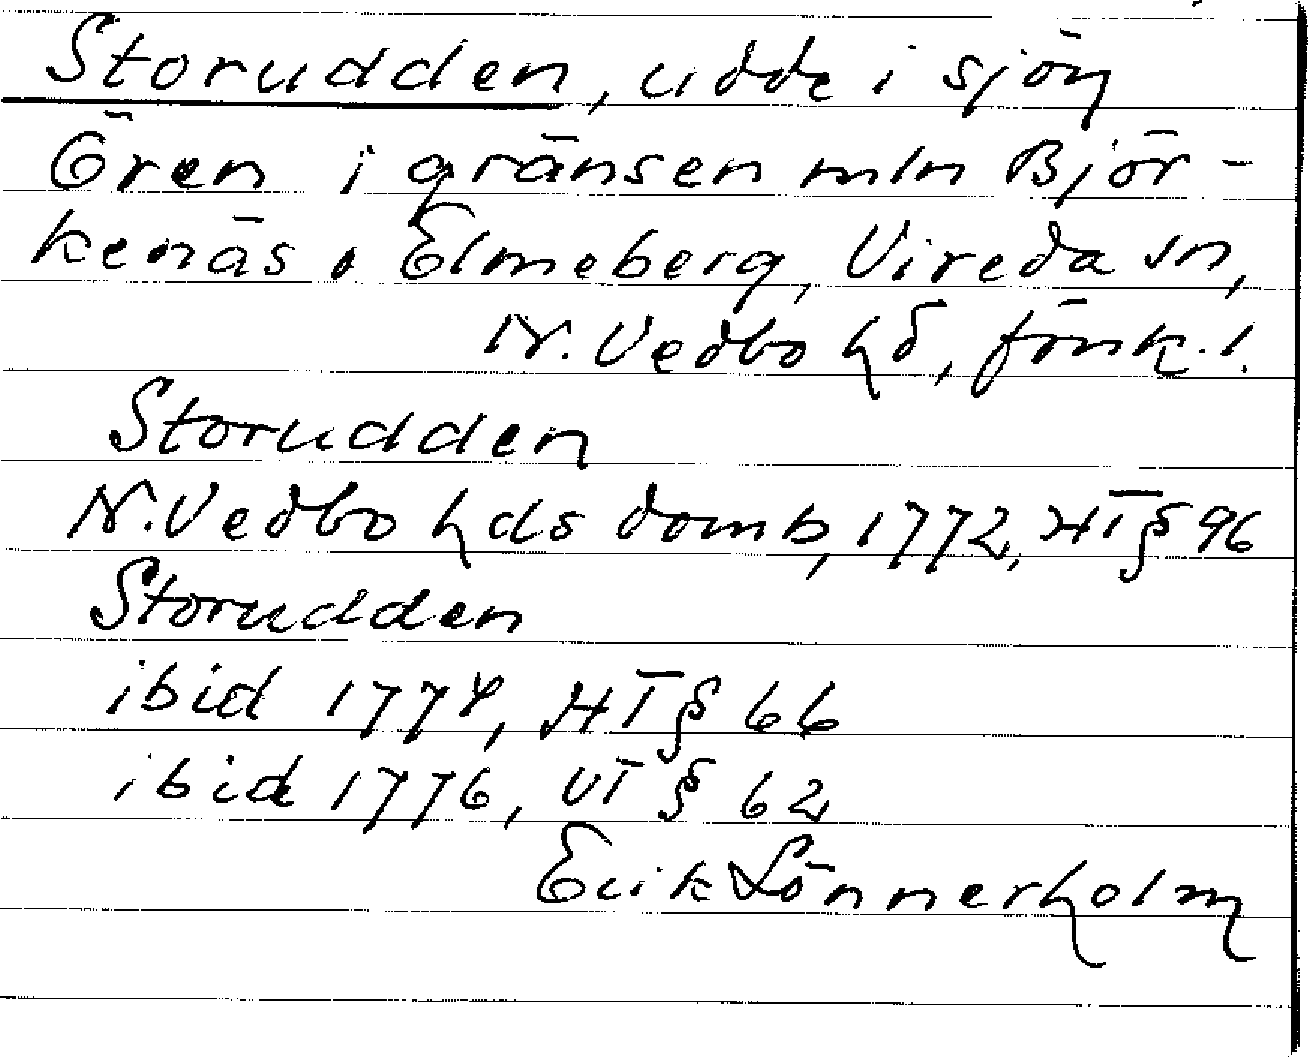 Storudden, udde i sjön
Ören i gränsen mln Björ-
kenäs o Elmeberg, Vireda sn,
N. Vedbo hd, Jönk. l.
Storudden
N. Vedbo hds domb, 1772, HT § 96
Storudden
ibid 1774, HT § 66
ibid 1776, VT § 62
Erik Lönnerholm